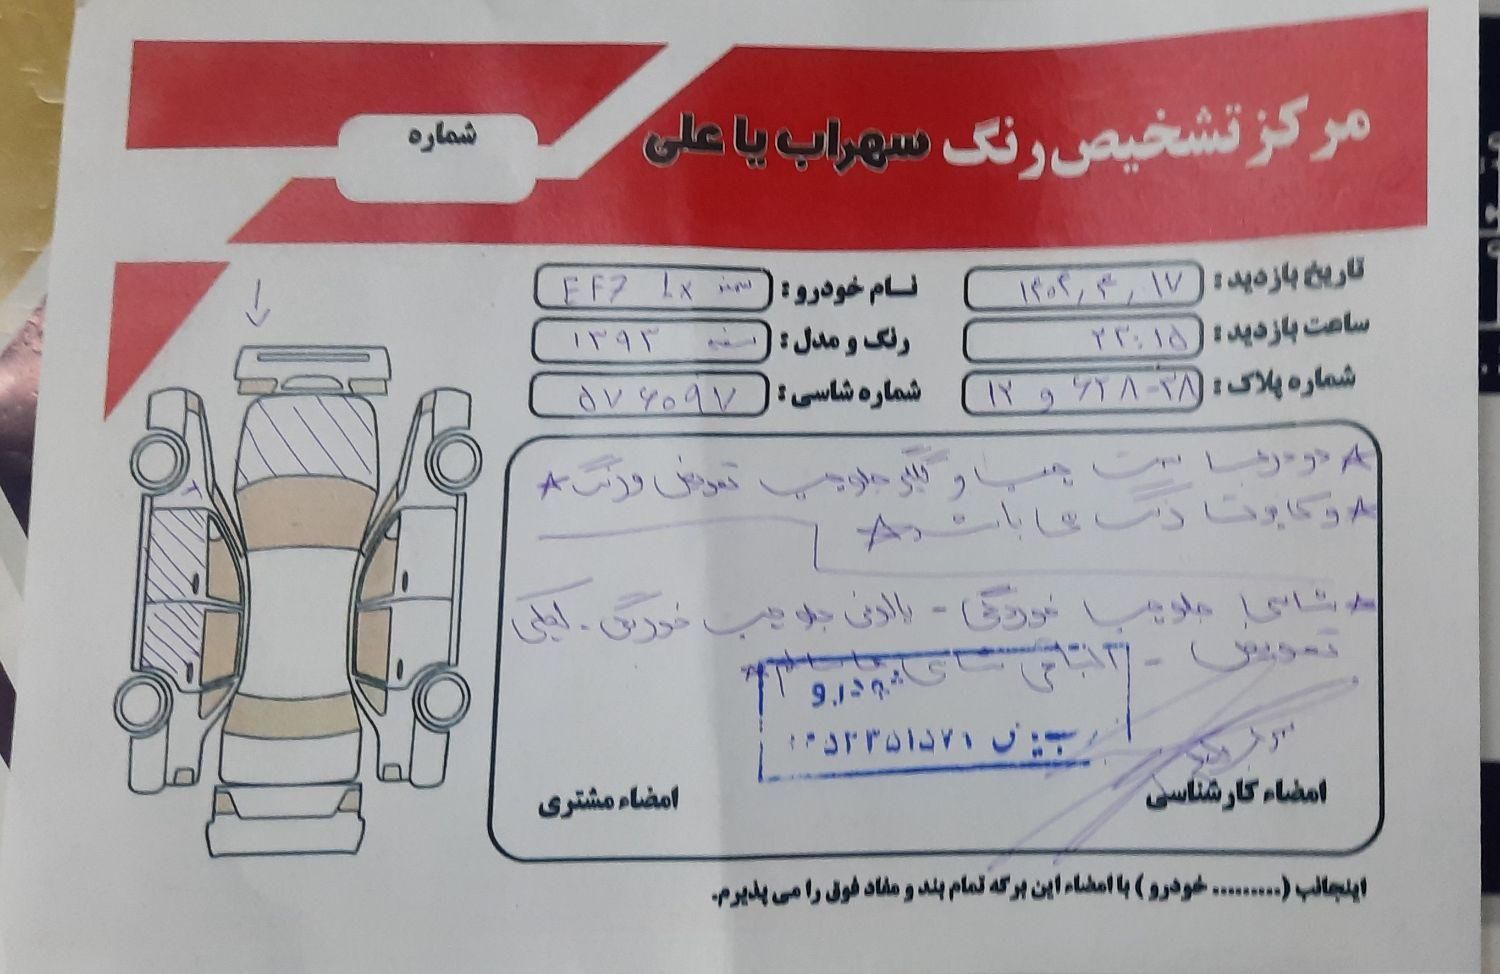 مرکز تشخیص رنگ سهراب یا علی
شماره
تاریخ بازدید: ۱۴۰۴,۴,۱۷
نام خودرو: سمند Lx EF7
ساعت بازدید: ۲۲:۱۵
رنگ و مدل: سفید ۱۳۹۳
شماره پلاک: ۳۸-۶۲۸ و ۱۲
شماره شاسی: ۵۷۶۰۹۷
* دو درب سمت چپ و گلگیر جلو چپ تعویض و رنگ *
* و کاپوت رنگ می باشد *
* شاسی جلو چپ خوردگی - پالونی جلو چپ خوردگی -
تعویض - مابقی شاسی ها سالم *
خودرو
امضاء کارشناسی
امضاء مشتری
اینجانب (......... خودرو) با امضاء این برگه تمام بند و مفاد فوق را می پذیرم.